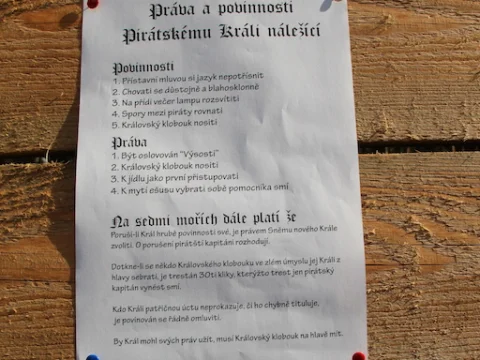 Práva a povinnosti
Pirátskému Králi náležící
Povinnosti
1. Přístavní mluvou si jazyk nepotřísnit
2. Chovati se důstojně a blahosklonně
3. Na přídi večer lampu rozsvítiti
4. Spory mezi piráty rovnati
5. Královský klobouk nositi
Práva
1. Být oslovován "Výsostí"
2. Královský klobouk nositi
3. K jídlu jako první přistupovati
4. K mytí ešusu vybrati sobě pomocníka smí
Na sedmi mořích dále platí že
Poruší-li Král hrubě povinnosti své, je právem Sněmu nového Krále
zvoliti. O porušení pirátští kapitáni rozhodují.
Dotkne-li se někdo Královského klobouku ve zlém úmyslu jej Králi z
hlavy sebrati, je trestán 30ti kliky, kterýžto trest jen pirátský
kapitán vynést smí.
Kdo Králi patřičnou úctu neprokazuje, či ho chybně tituluje,
je povinován se řádně omluviti.
By Král mohl svých práv užít, musí Královský klobouk na hlavě mít.